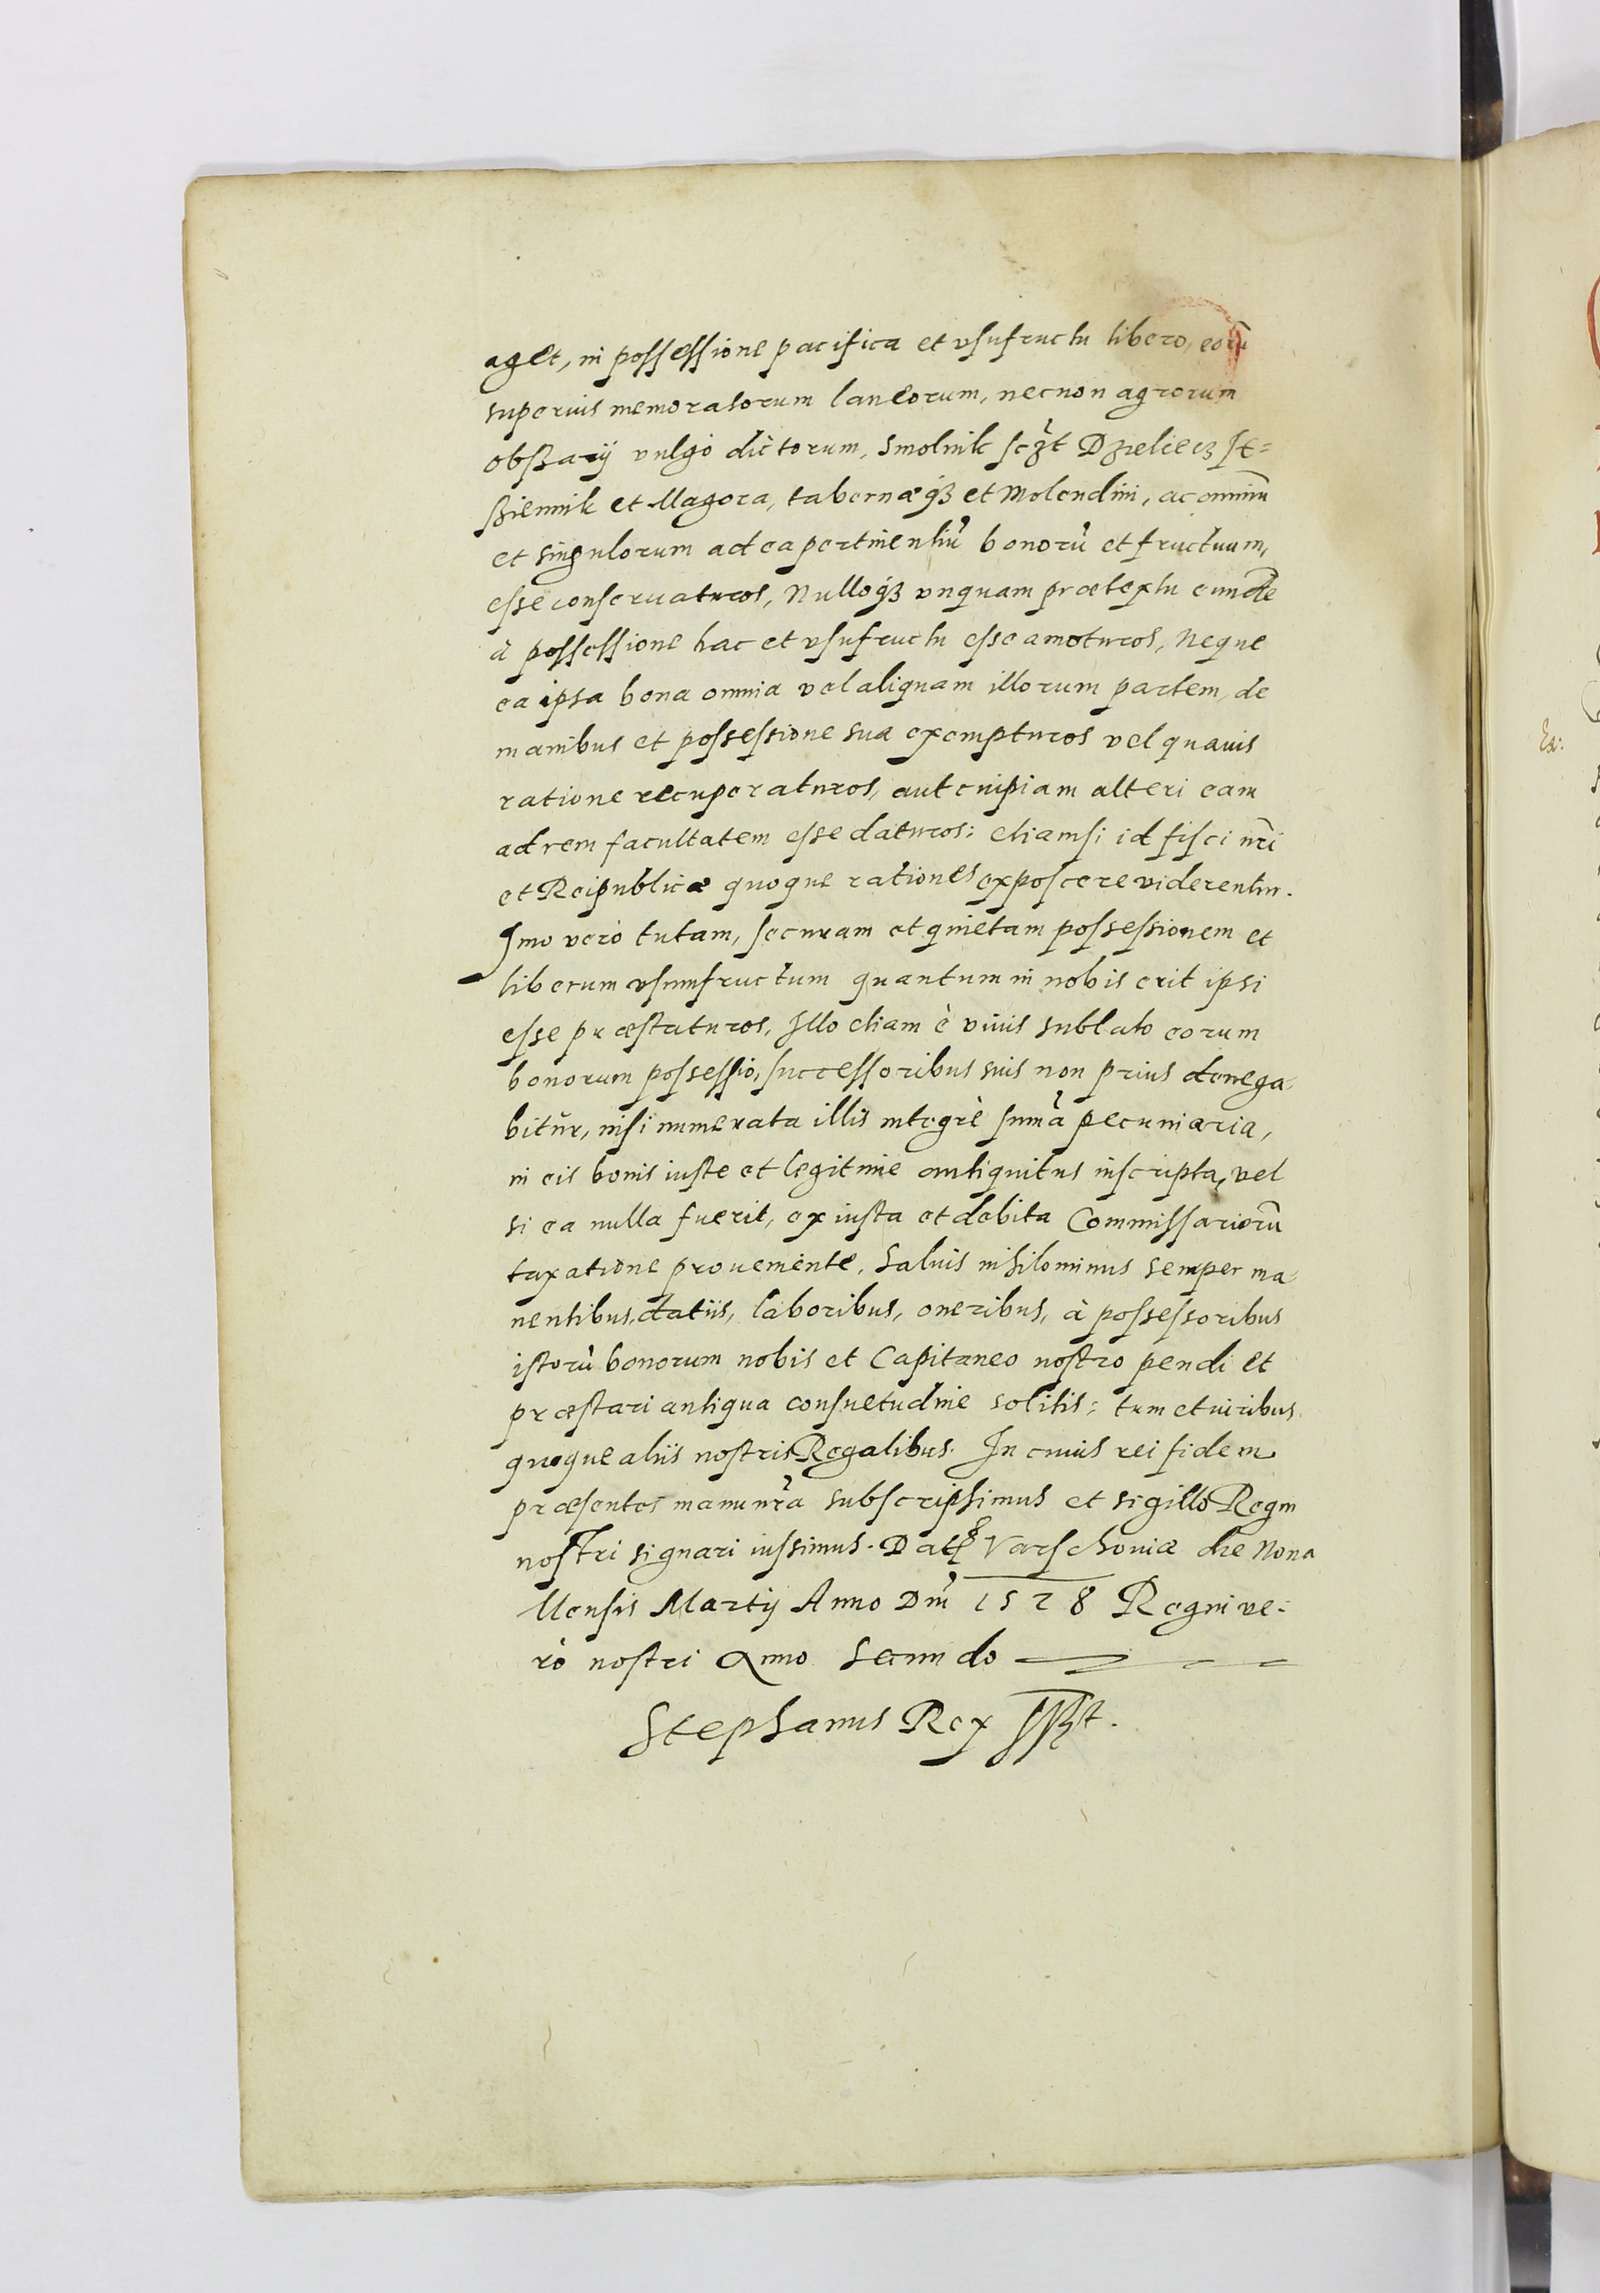 aget, in possessione pacifica et vsufructu libero, eorū
superius memoratorum laneorum, necnon agrorum
obszary vulgò dictorum, Smolnik scz̃t Dzielecz St=
sziennik et Magora, tabernæq́ꝫ et Molendini, ac omniū
et singulorum ad ea pertinentiũ bonorũ et fructuum,
esse conseruaturos, Nulloq́ꝫ vnquam prætextu eundē
à possessione hac et vsufructu esse amoturos, Neque
ea ipsa bona omnia vel aliquam illorum partem, de
manibus et possessione sua exempturos vel quauis
ratione recuperaturos, aut cuipiam alteri eam
ad rem facultatem esse daturos: etiamsi id fisci nr̃i
et Reipublicæ quoque rationes exposcere viderentur.
Imo verò tutam, securam et quietam possessionem et
liberum vsumfructum quantum in nobis erit ipsi
esse præstaturos, Illo etiam è viuis sublato eorum
bonorum possessio, successoribus suis non prius denega
bitur, nisi numerata illis integrè sum̃a pecuniaria,
in eis bonis iuste et legitime antiquitus inscripta, vel
si ea nulla fuerit, ex iusta et debita Commissariorũ
taxatione proueniente, Saluis nihilominus semper ma
nentibus, datiis, laboribus, oneribus, à possessoribus
istorũ bonorum nobis et Capitaneo nostro pendi et
præstari antiqua consuetudine solitis: tum et iuribus
quoque aliis nostris Regalibus. In cuius rei fidem
præsentes manu nr̃a subscripsimus et sigillo Regni
nostri signari iussimus. Datꝭ Varschouiæ die Nona
Mensis Martij Anno Dn̄i 1578 Regni ve-
rò nostri Anno Secundo
Stephanus Rex sszt.
Ex: